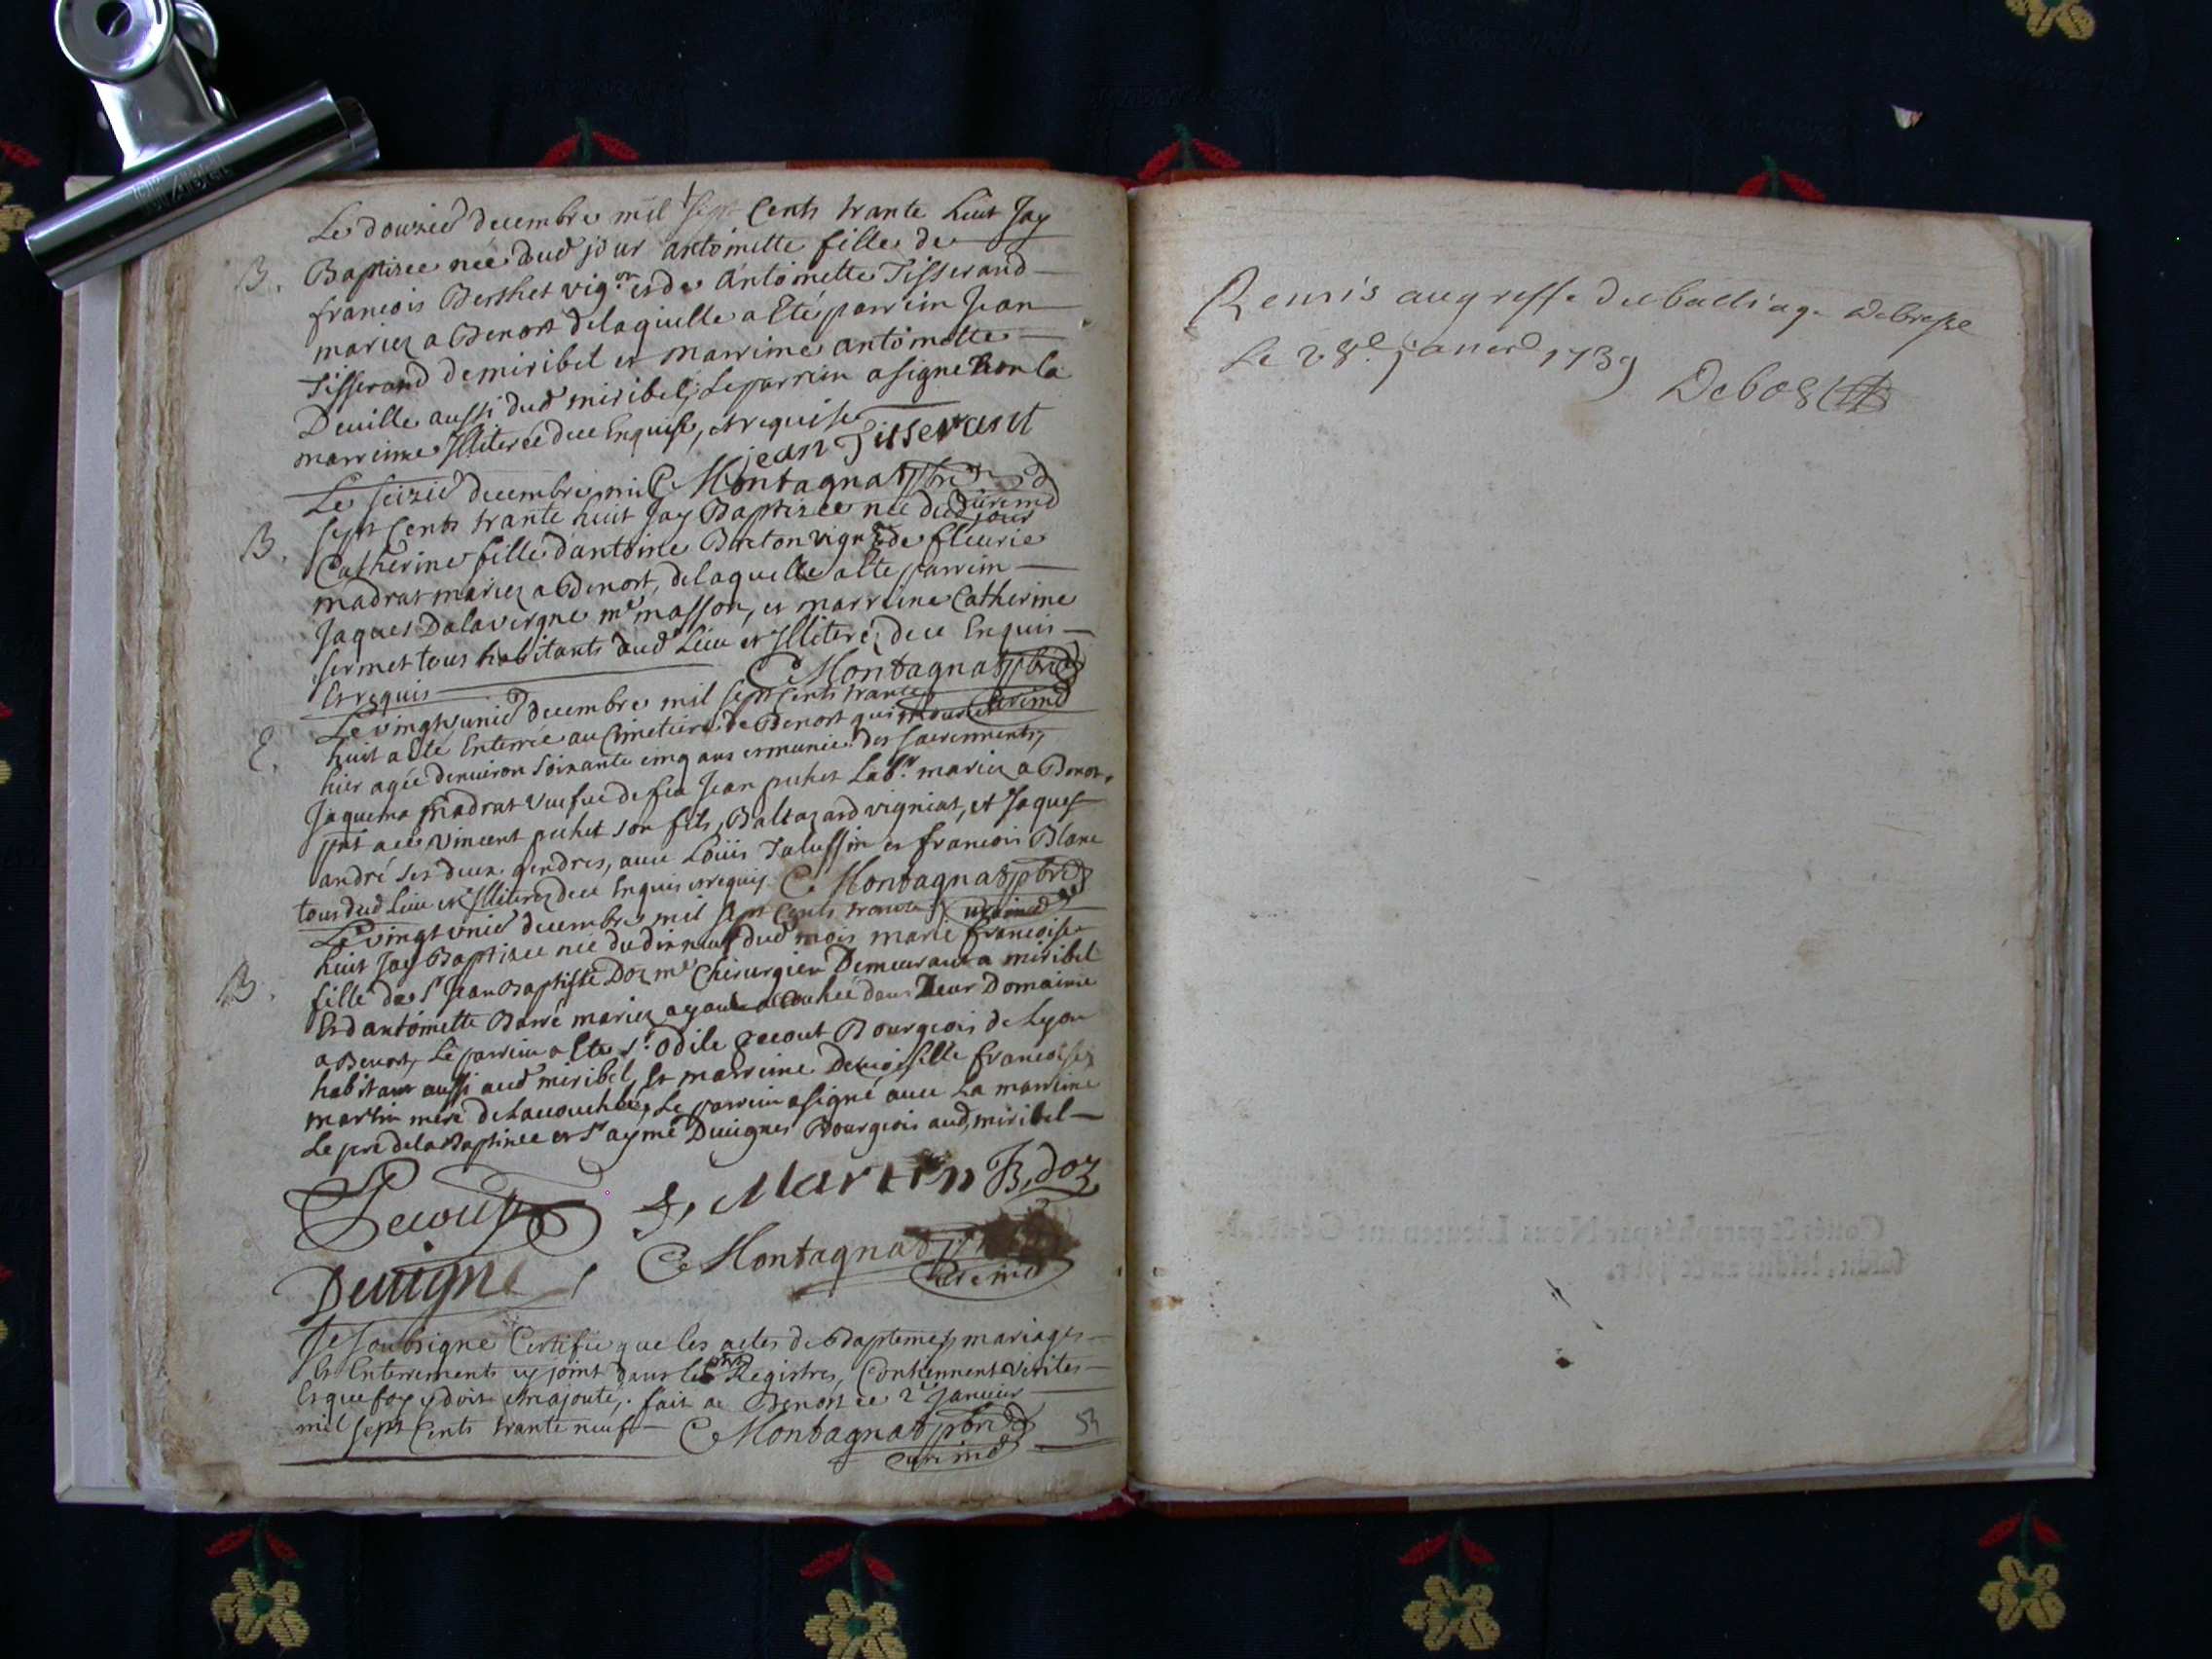 Le douzie decembre mil sept Cents trante huit Jay
B. Baptisee née dud jour antoinette fille de
francois Berthet vig.on et de Antoinette Tisserand
mariez a Benost delaquelle a Eté parrein Jean
Tisserand de miribel et marrine antoinette
Deuille aussi dud miribel, Le parrein a signé non la
marreine Illiterée de ce Enquise, et requise
jean Tisserant
C. Montagnat pbre
curé und
Le seizie decembre mil
B. sept Cents trante huit Jay Baptizee née dud jour
Catherine fille d'antoine Breton vign et de fleurie
madrat mariez a Benost, delaquelle a Eté parrein
Jaques Dalavergne me masson, et marreine Catherine
sermet tous habitants dud Lieu et Illiteréz de ce Enquis
Et requis
C. Montagnat pbre
curé und
Le vingtunie decembre mil sept Cents trante
E. huit a Eté Enterrée au Cimetiere de Benost qui mourut
hier agée denuiron soixante cinq ans et munie des sacrements,
Jaquema madrat veufue de feu Jean puhet Lab.r mariez a Benost,
pnt aces vincent puhet son fils, Baltazard vigniat, et Jaques
andré ses deux gendres, auec Loüis Talussin et francois Blanc
tous dud Lieu et Illiterez de ce Enquis et requis. C. Montagnat pbre
curé und
Le vingtunie decembre mil sept Cents trante
B. huit Jay Baptizee née du dixneuf dud mois marie francoise
fille de Sr Jean Baptiste Doz me Chirurgien Demeurant a miribel
Et d'antoinette Barré mariez ayant accouchée dans Leur Domaine
a Benost, Le parrein a Eté Sr. Odile Pecout Bourgeois de Lyon
habitant aussi aud miribel, Et marreine Demoiselle francoise
martin mere de Laccouchée, Le parrein a signé auec La marreine
Le pere de la Baptizee et Sr aymé Deuignes Bourgeois aud miribel
Pecout f, Martin B, doz
Deuignes C. Montagnat
curé und
Je soubsigné Certifie que les actes de Baptemes, mariages
Et Enterrements cy joint dans les pnts Registres, Contiennent verites
Et que foy y doit etre ajouté, fait a Benost ce 2e Januier
mil sept Cents trante neuf C. Montagnat pbre
curé und
53
Remis au greffe du bailliage de bresse
Le 28e janvier 1739
Debos